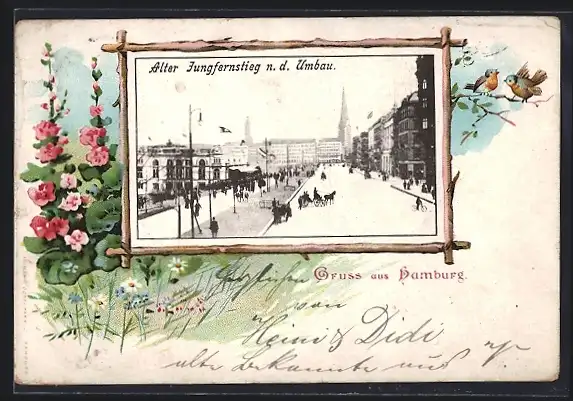 Alter Jungfernstieg n. d. Umbau.
Gruss aus Hamburg.
von
Heini & Didi
alte Bekannte aus